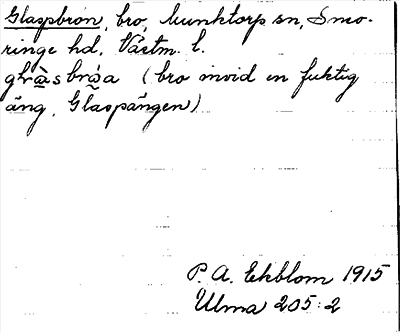 Glaspbron, bro, Munktorp sn, Snro-
ringe hd, Västm. l.
(bro invid en fuktig
äng, Glaspängen)
P. A. Ekblom 1915
Ulma 205:2